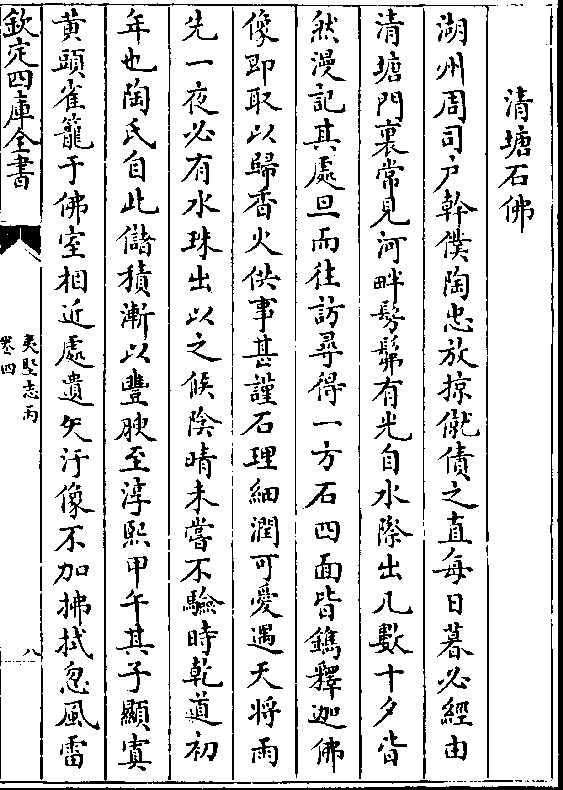 清塘石佛
湖州周司户幹僕陶忠放掠僦債之直每日暮必經由
清塘門裏常見河畔髣髴有光自水際出凡數十夕皆
然漫記其處旦而往訪尋得一方石四面皆鐫釋迦佛
像即取以歸香火供事甚謹石理細潤可愛遇天將雨
先一夜必有水珠出以之候陰晴未嘗不驗時乾道初
年也陶氏自此儲積漸以豐腴至淳熙甲午其子顯寘
黄頭雀籠于佛室相近處遺矢汙像不加拂拭忽風雷
欽定四庫全書
夷堅志丙
卷四
八